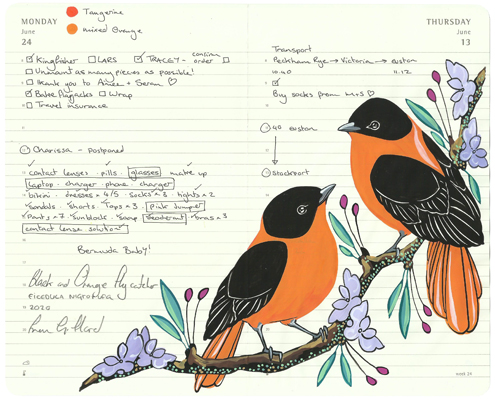 Tangerine
mixed orange
MONDAY
June
24
Kingfisher LARS TRACEY - confirm order
Unmount as many pieces as possible!
thank you to Aimee + Seran ♡
Wrap
Travel insurance
Charissa - postponed
contact lenses · pills · glasses · make up
laptop · charger · phone · charger
bikini · dresses × 4/5 · socks × 3 · tights × 2
sandals · shorts · tops × 3 · pink jumper
pants × 7 · sunblock · soap · deodorant · bras × 3
contact lens solution
Bermuda Baby!
Black and Orange Flycatcher
FICEDULA NIGRORUFA
2020
THURSDAY
June
13
Transport
Peckham Rye → Victoria → euston
10.40 11.12
Buy socks from M+S ♡
40 euston
Stockport
week 24